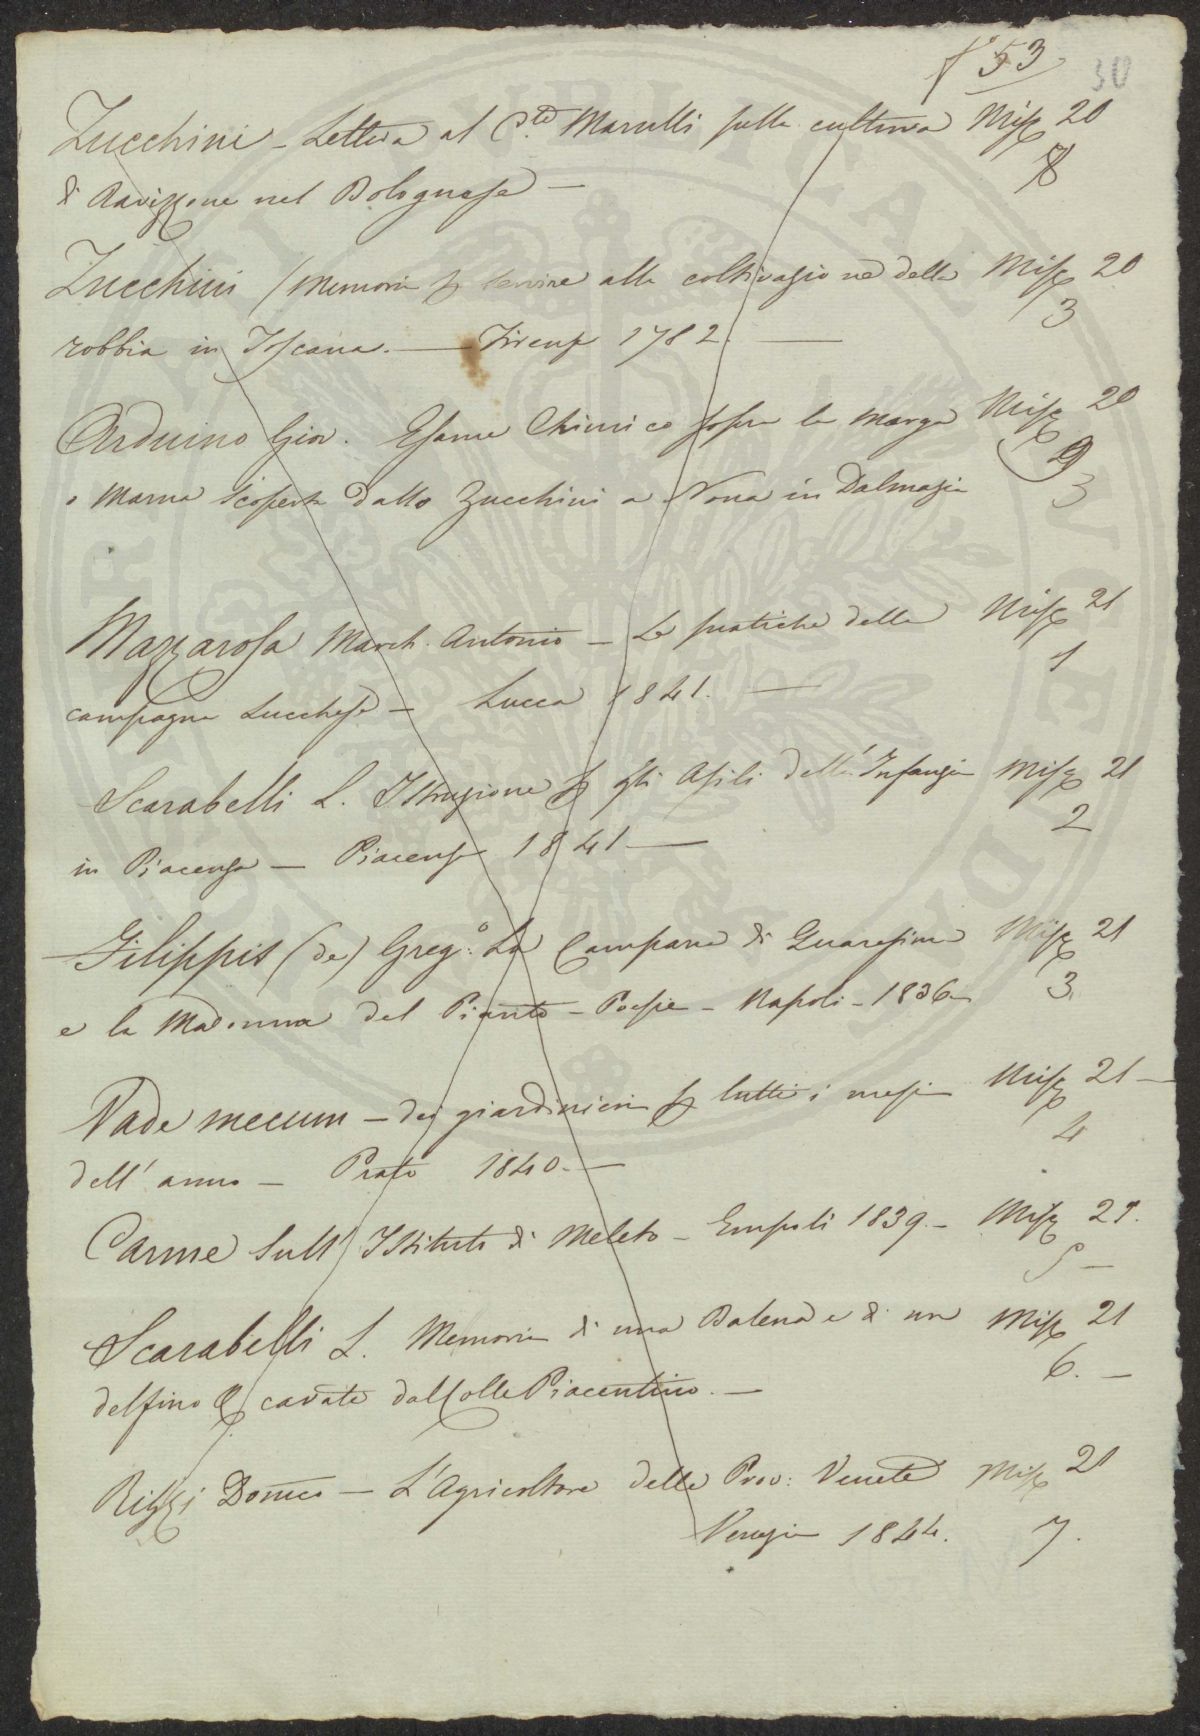 f.° 53
30
Zucchini – Lettera al C.te Marulli sulla cultura Misz 20
di Ravizzone nel Bolognese — 8
Zucchini (Memoria p servire alla coltivazione della Misz 20
robbia in Toscana. — Firenze 1782. — 3
Arduino Giov. Esame Chimico sopra la Marga Misz 20
o Marna scoperta dallo Zucchini a Nona in Dalmazia 9
3
Mazzarosa March. Antonio – Le pratiche della Misz 21
campagna Lucchese – Lucca 1841. — 1
Scarabelli L. Istruzione p gli Asili dell'Infanzia Misz 21
in Piacenza — Piacenza 1841 — 2
Filippis (de) Greg.° La Campana di Quaresima Misz 21
e la Madonna del Pianto – Poesie – Napoli – 1836 3.
Vade mecum – dei giardinieri p tutti i mesi Misz 21 —
dell'anno – Prato 1840. — 4
Carme sull'Istituto di Meleto – Empoli 1839. – Misz 21.
5 –
Scarabelli L. Memoria di una Balena e di un Misz 21
delfino cavate dal Colle Piacentino. — 6. –
Rizzi Domco — L'Agricoltore delle Prov: Venete Misz 21
Venezia 1844. 7.